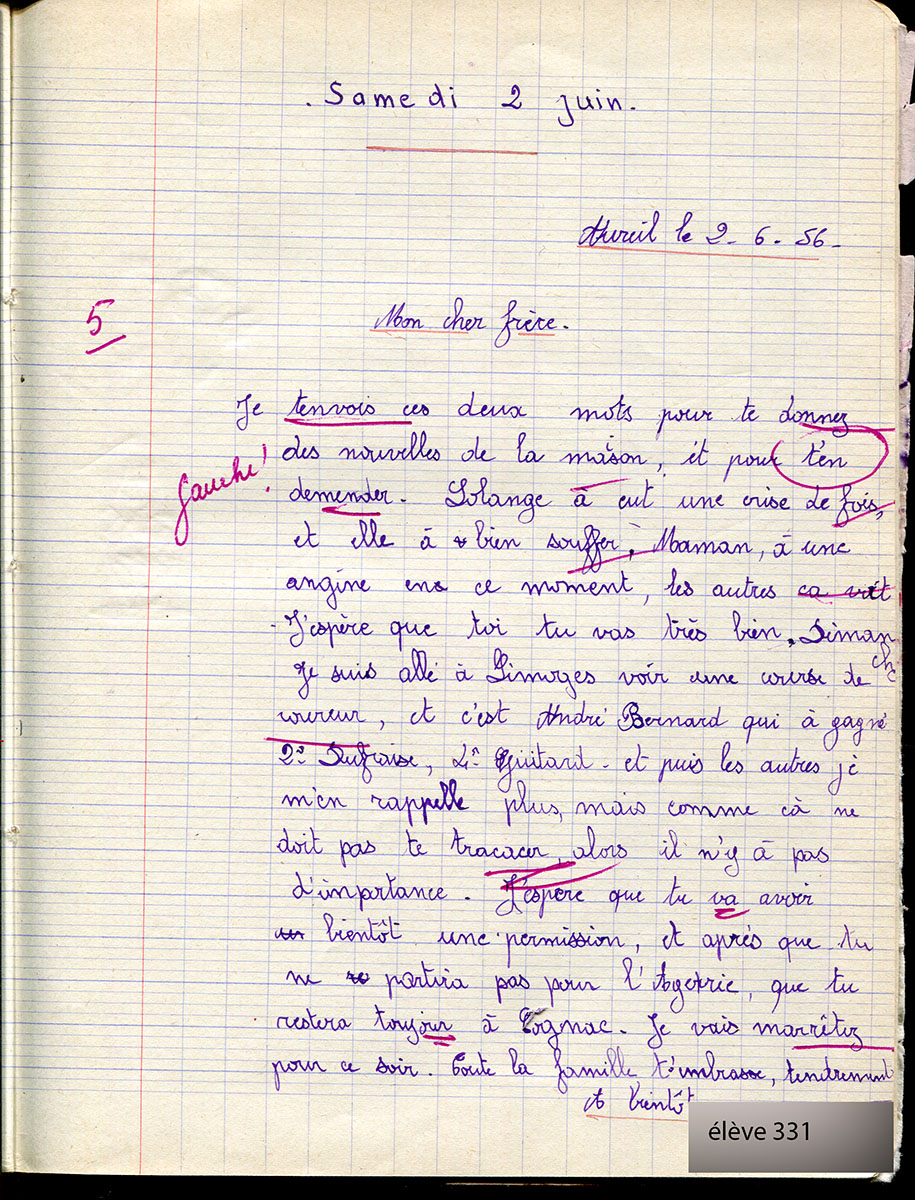 . Samedi 2 juin.
Avreil le 2 - 6 - 56 -
5
Mon cher frère.
Je tenvois ces deux mots pour te donnez
des nouvelles de la maison, et pour t'en
gauche!
demender. Solange à eut une crise de fois,
et elle à bien souffer, Maman, à une
angine en ce moment, les autres ca vat
J'espère que toi tu vas très bien, Diman
che
Je suis allé à Limoges voir une course de
coureur, et c'est André Bernard qui à gagné
2e Dufraise, 4e Guitard - et puis les autres je
m'en rappelle plus, mais comme cà ne
doit pas te tracacer, alors il n'y à pas
d'importance. J'espère que tu va avoir
bientôt une permission, et aprés que tu
ne partira pas pour l'Agerie, que tu
restera toujour à Cognac. Je vais marrêtez
pour ce soir. Toute la famille t'embrasse, tendrement
A bientôt
élève 331